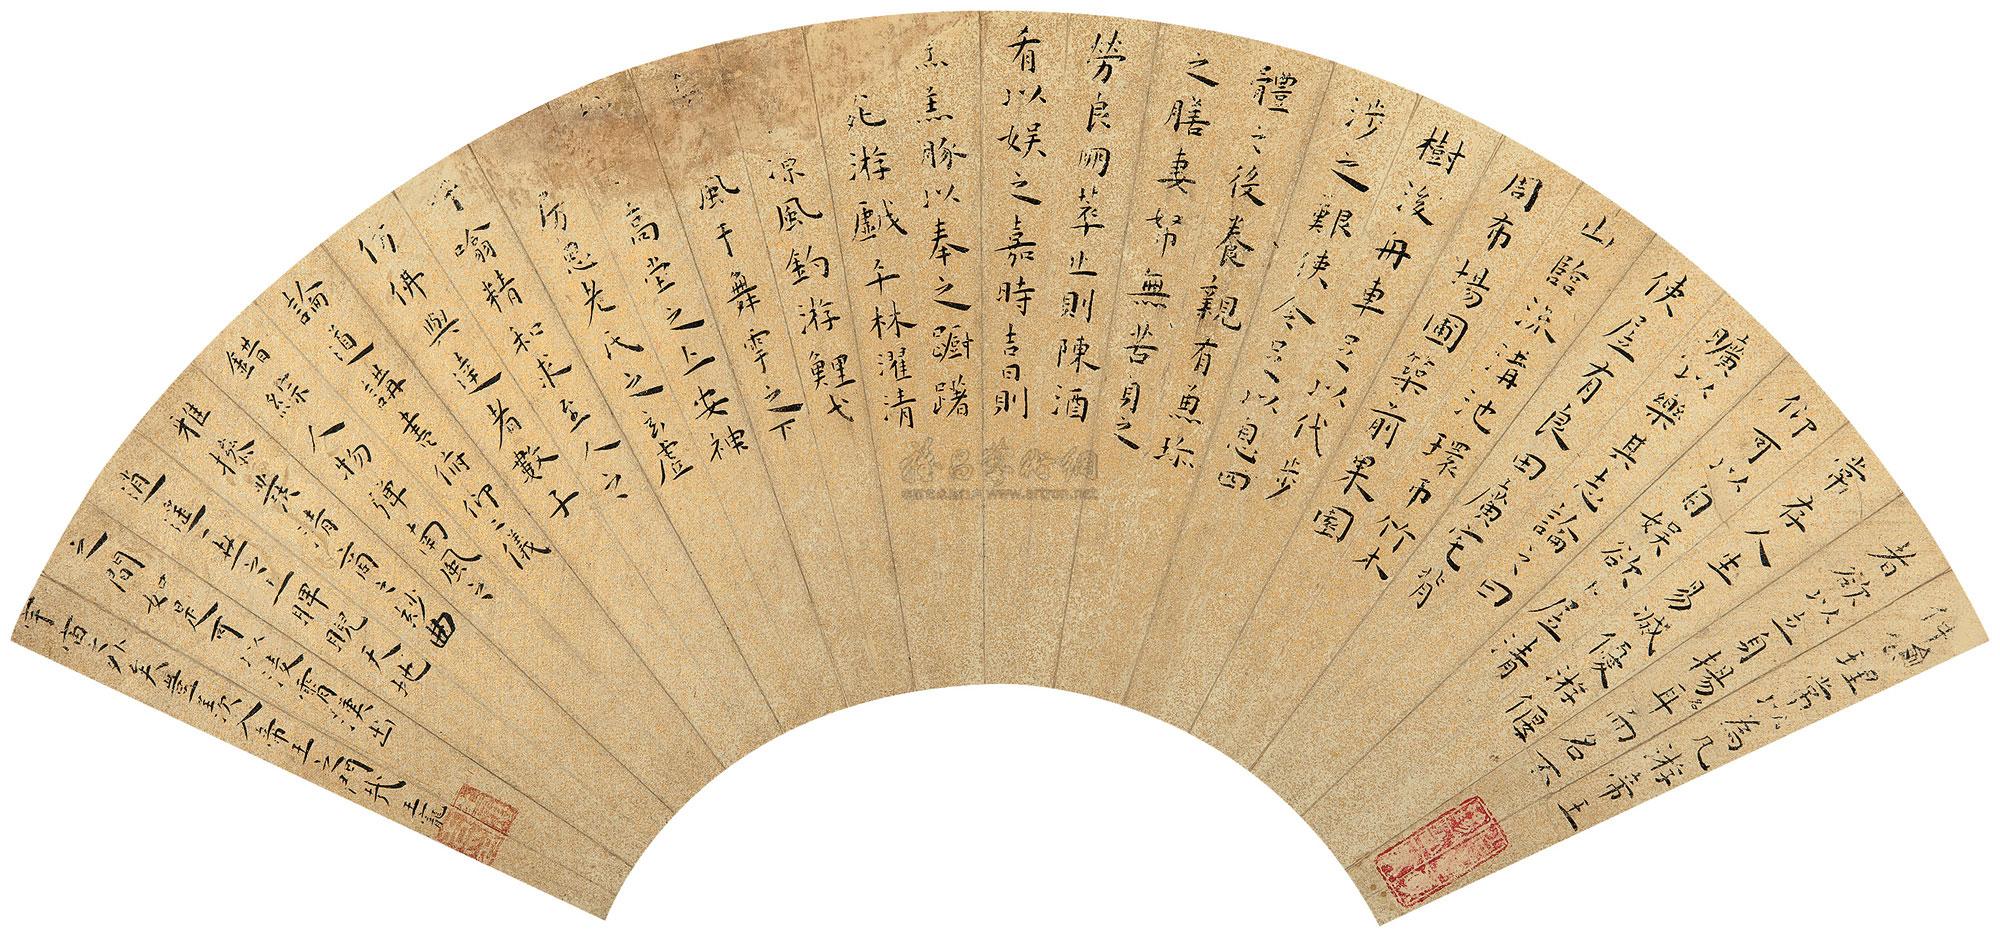 仲理常以為凡游帝王
者欲以立身楊名耳而名不
常存人生易滅優游偃
仰可以自娛欲卜居清
曠以樂其志論之曰
使居有良田廣宅背
山臨流溝池環帀竹木
周布場圃築前果園
樹後舟車足以代步
涉之艱使令足以息四
體之役養親有兼珍
之膳妻帑無苦身之
勞良朋萃止則陳酒
肴以娛之嘉時吉日則
烹羔豚以奉之躕躇
苑游戲平林濯清
涼風釣游鯉弋
風于舞雩之下
高堂之上安神
房思老氏之玄虛
噏精和求至人之
仿佛與達者數子
論道講書俯仰二儀
錯綜人物彈南風之
雅操發清商之妙曲
逍遙一世之上睥睨天地
之間如是可以凌霄漢出
宇宙之外矣豈羨入帝王之門哉 士龍